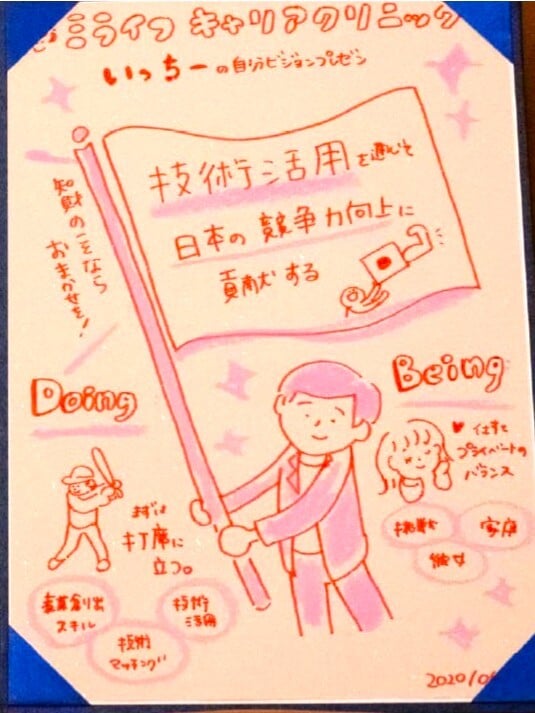 ミライフ キャリアクリニック
いっちーの自分ビジョンプレゼン
技術活用を通じて
日本の競争力向上に
貢献する
知財のことなら
おまかせを!
Doing
Being
まずは
打席に
立つ。
♥ 仕事と
プライベートの
バランス
挑戦
家庭
彼女
産業創出
スキル
技術
活用
技術
マッチング
2020/0